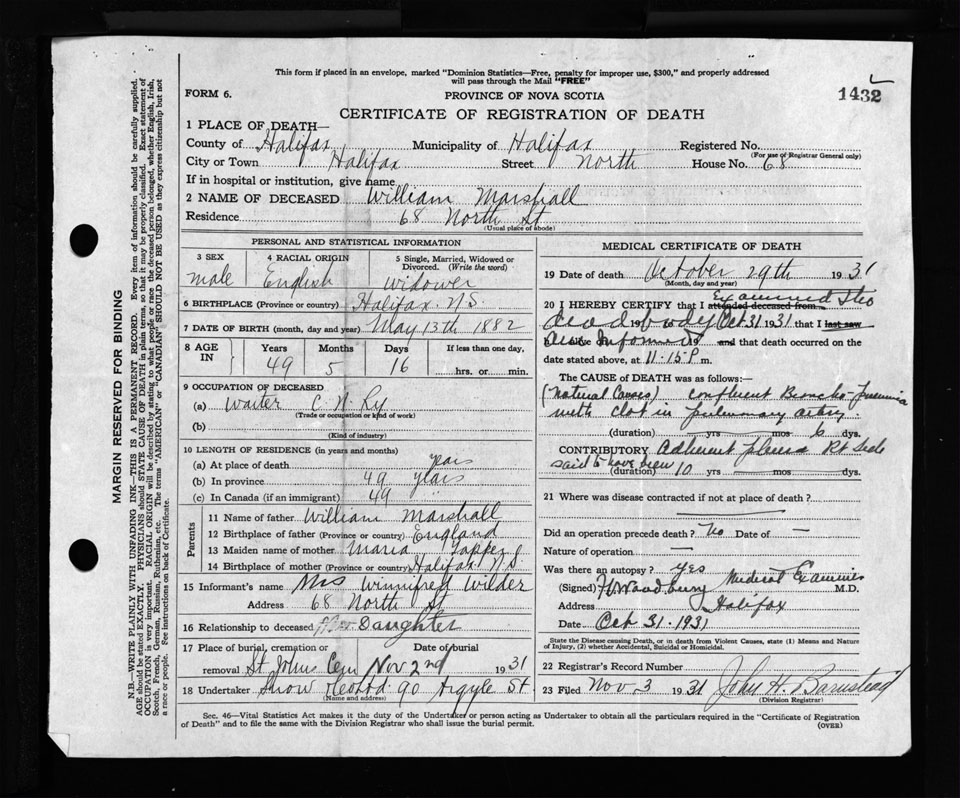 This form if placed in an envelope, marked "Dominion Statistics—Free, penalty for improper use, $300," and properly addressed
will pass through the Mail "FREE"
FORM 6.
PROVINCE OF NOVA SCOTIA
1432
CERTIFICATE OF REGISTRATION OF DEATH
1 PLACE OF DEATH—
County of Halifax Municipality of Halifax Registered No.
(For use of Registrar General only)
City or Town Halifax Street North House No. 68
If in hospital or institution, give name
2 NAME OF DECEASED William Marshall
Residence 68 North St
(Usual place of abode)
PERSONAL AND STATISTICAL INFORMATION
3 SEX 4 RACIAL ORIGIN 5 Single, Married, Widowed or Divorced. (Write the word)
male English Widower
6 BIRTHPLACE (Province or country) Halifax. N.S.
7 DATE OF BIRTH (month, day and year) May 13th 1882
8 AGE IN Years Months Days If less than one day,
49 5 16 hrs. or min.
9 OCCUPATION OF DECEASED
(a) Waiter C. N. Ry
(Trade or occupation or kind of work)
(b)
(Kind of industry)
10 LENGTH OF RESIDENCE (in years and months)
(a) At place of death years
(b) In province 49 years
(c) In Canada (if an immigrant) 49 "
Parents
11 Name of father William Marshall
12 Birthplace of father (Province or country) England
13 Maiden name of mother Maria
14 Birthplace of mother (Province or country) Halifax N.S.
15 Informant's name Mrs Winnifred Wilder
Address 68 North St
16 Relationship to deceased Daughter
17 Place of burial, cremation or Date of burial
removal St Johns Cem Nov 2nd 1931
18 Undertaker Snow 90 Argyle St.
(Name and address)
MEDICAL CERTIFICATE OF DEATH
19 Date of death October 29th 1931
(Month, day and year)
20 I HEREBY CERTIFY that I attended deceased from Examined the
dead body Oct 31 1931 that I last saw
was informed and that death occurred on the
date stated above, at 11.15 P m.
The CAUSE of DEATH was as follows:—
(Natural Causes) confluent Broncho-Pneumonia
with clot in pulmonary artery.
(duration) yrs mos 6 dys.
CONTRIBUTORY Adherent pleura Rt side
said to have been
(duration) 10 yrs. mos. dys.
21 Where was disease contracted if not at place of death?
Did an operation precede death? No Date of —
Nature of operation —
Was there an autopsy? yes
(Signed) Woodbury Medical Examiner M.D.
Address Halifax
Date Oct 31. 1931
State the Disease causing Death, or in death from Violent Causes, state (1) Means and Nature
of Injury, (2) whether Accidental, Suicidal or Homicidal.
22 Registrar's Record Number
23 Filed Nov 3 1931 John H. Barnstead
(Division Registrar)
Sec. 46—Vital Statistics Act makes it the duty of the Undertaker or person acting as Undertaker to obtain all the particulars required in the "Certificate of Registration
of Death" and to file the same with the Division Registrar who shall issue the burial permit.
(OVER)
MARGIN RESERVED FOR BINDING
N.B.—WRITE PLAINLY WITH UNFADING INK—THIS IS A PERMANENT RECORD. Every item of information should be carefully supplied.
AGE should be stated EXACTLY. PHYSICIANS should STATE CAUSE OF DEATH in plain terms, so that it may be properly classified. Exact statement of
OCCUPATION is very important. RACIAL ORIGIN will be described by stating to what people or race the deceased person belonged, whether English, Irish,
Scotch, French, German, Russian, Ruthenian, etc. The terms "AMERICAN" or "CANADIAN" SHOULD NOT BE USED as they express citizenship but not
a race or people. Fee instructions on back of Certificate.